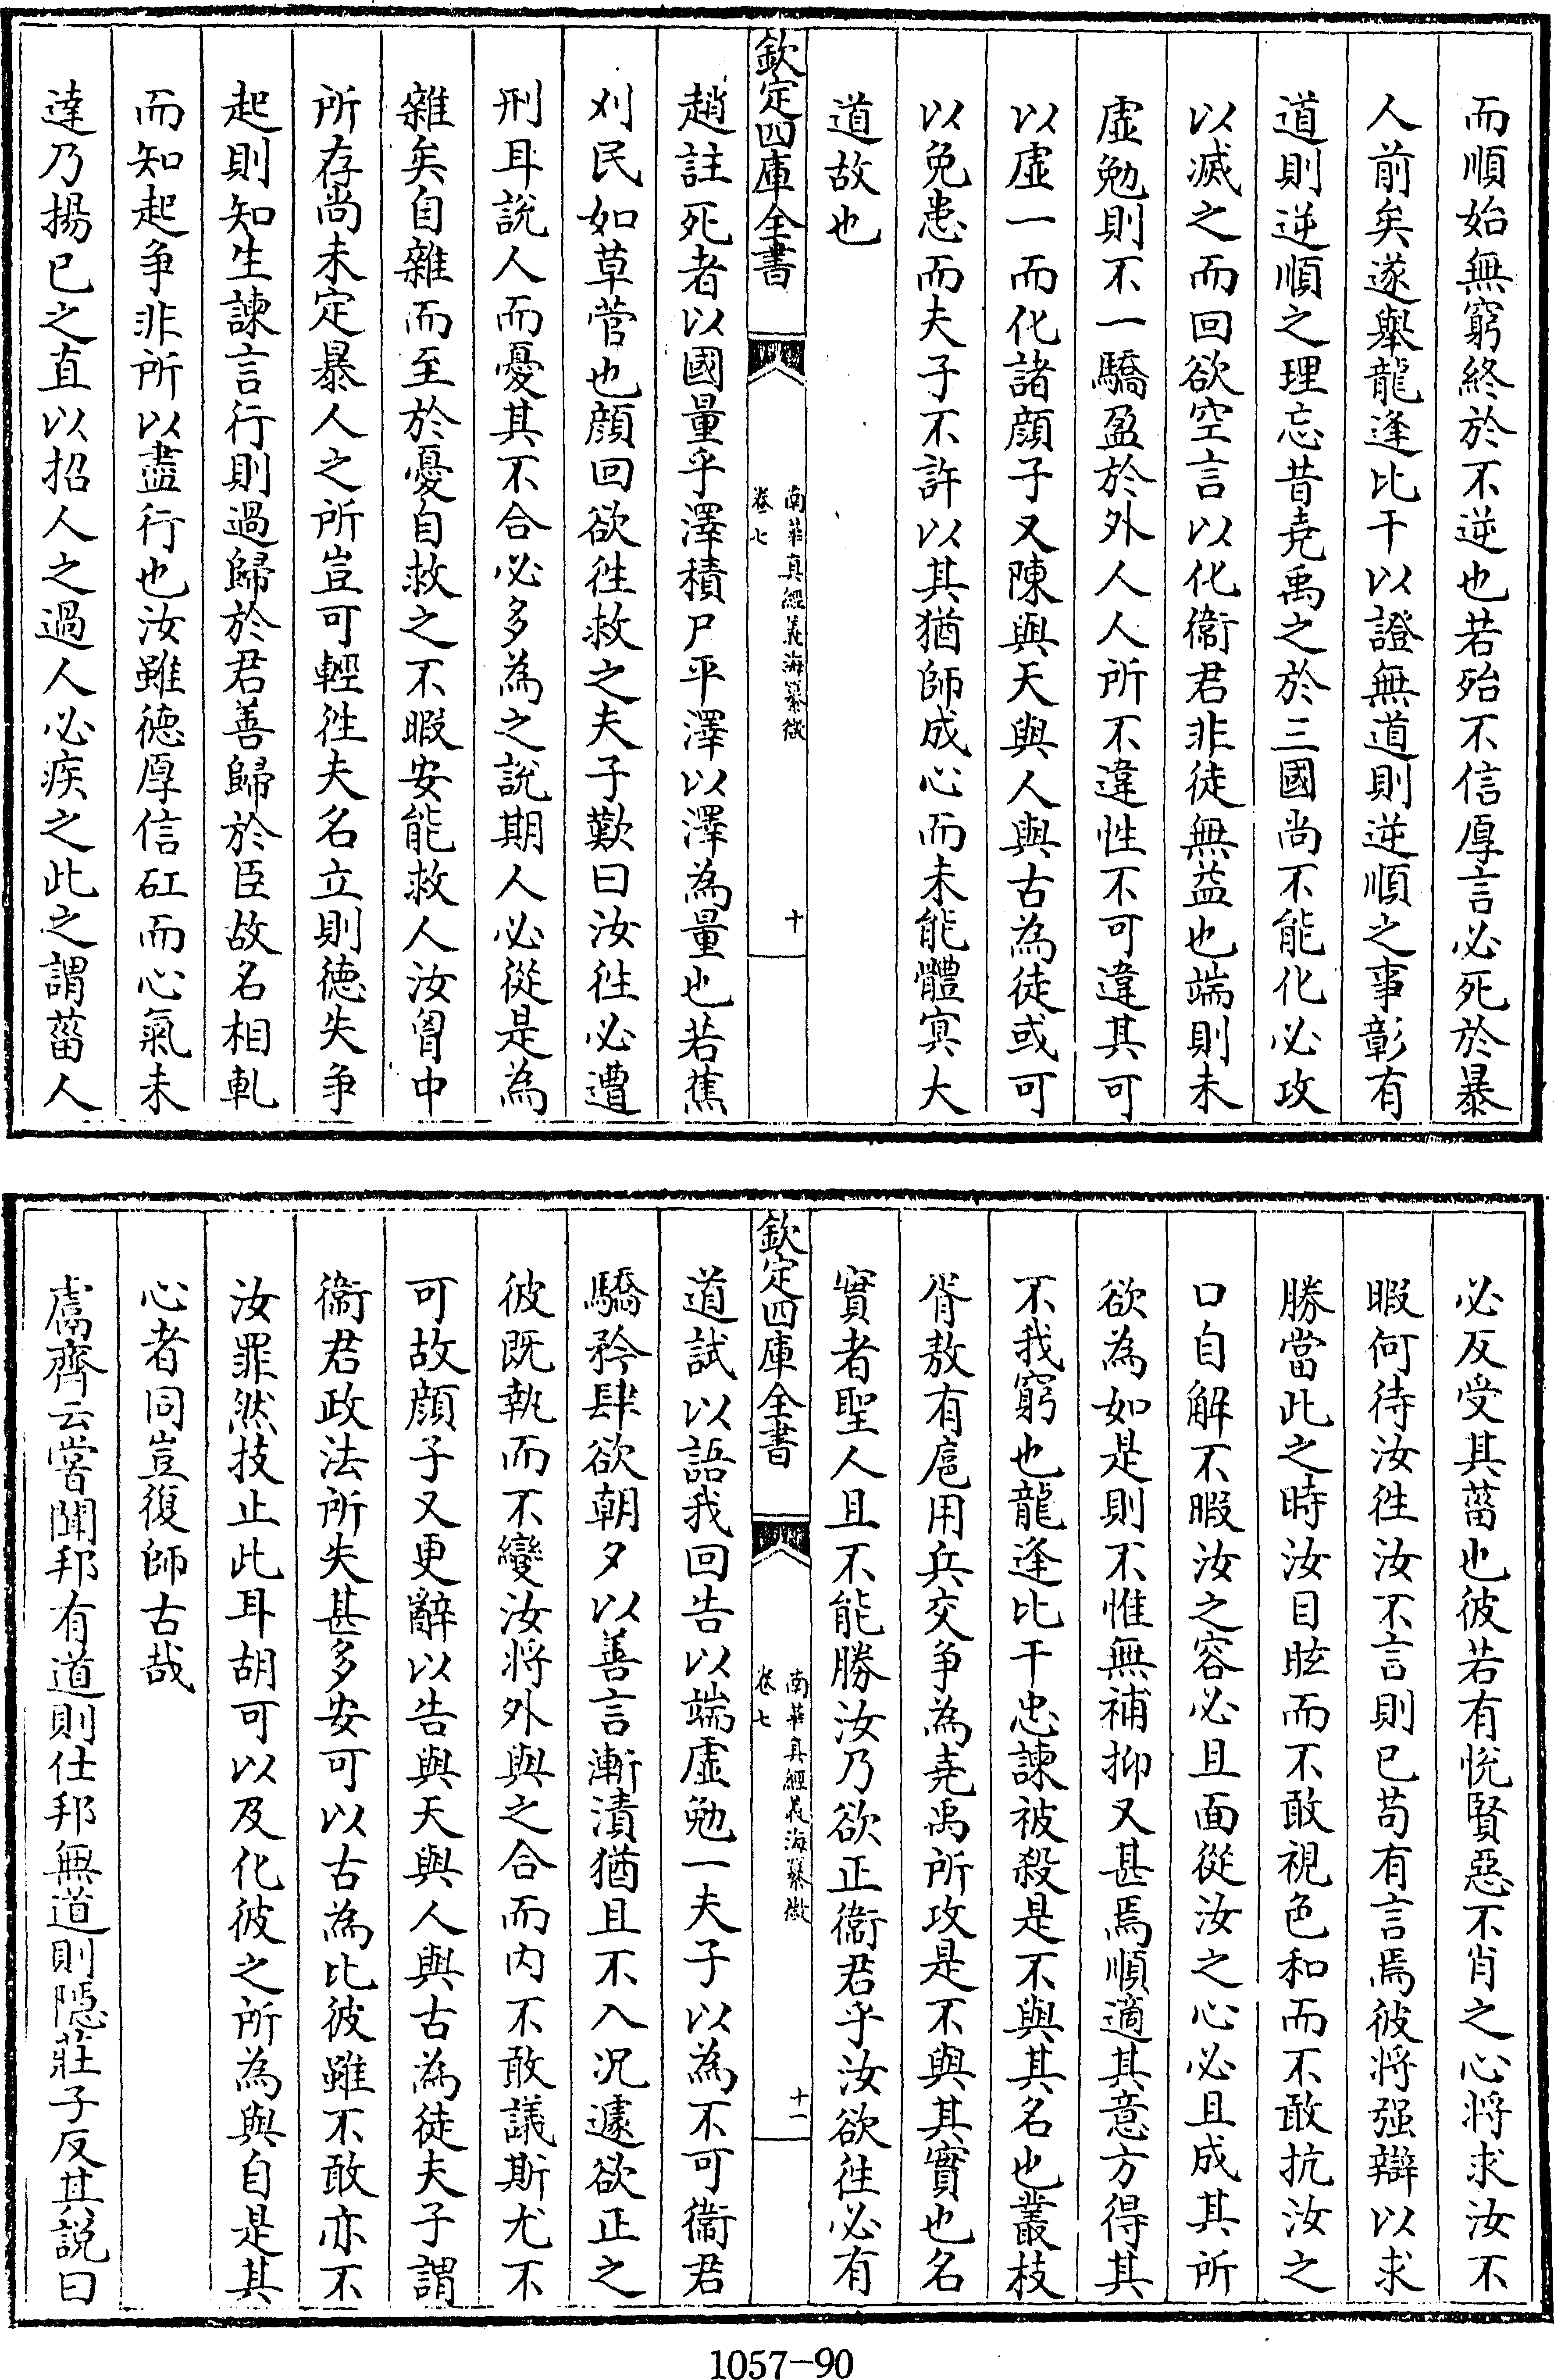 而順始無窮終於不逆也若殆不信厚言必死於暴
人前矣遂舉龍逢比干以證無道則逆順之事彰有
道則逆順之理忘昔堯禹之於三國尚不能化必攻
以滅之而回欲空言以化衞君非徒無益也端則未
虛勉則不一驕盈於外人人所不違性不可違其可
以虛一而化諸顔子又陳與天與人與古為徒或可
以免患而夫子不許以其猶師成心而未能體㝠大
道故也
欽定四庫全書
南華真經義海纂微
卷七
十
趙註死者以國量乎澤積尸平澤以澤為量也若蕉
刈民如草菅也顔回欲徃救之夫子歎曰汝徃必遭
刑耳說人而憂其不合必多為之說期人必從是為
雜矣自雜而至於憂自救之不暇安能救人汝胷中
所存尚未定暴人之所豈可輕徃夫名立則徳失争
起則知生諫言行則過歸於君善歸於臣故名相軋
而知起争非所以盡行也汝雖徳厚信矼而心氣未
達乃揚已之直以招人之過人必疾之此之謂菑人
必反受其菑也彼若有悅賢惡不肖之心將求汝不
暇何待汝徃汝不言則已苟有言焉彼將强辯以求
勝當此之時汝目眩而不敢視色和而不敢抗汝之
口自解不暇汝之容必且面從汝之心必且成其所
欲為如是則不惟無補抑又甚焉順適其意方得其
不我窮也龍逢比干忠諫被殺是不與其名也叢枝
胥敖有扈用兵交争為堯禹所攻是不與其實也名
實者聖人且不能勝汝乃欲正衞君乎汝欲徃必有
欽定四庫全書
南華真經義海纂微
卷七
十一
道試以語我回告以端虛勉一夫子以為不可衞君
驕矜肆欲朝夕以善言漸漬猶且不入况遽欲正之
彼既執而不變汝將外與之合而内不敢議斯尤不
可故顔子又更辭以告與天與人與古為徒夫子謂
衞君政法所失甚多安可以古為比彼雖不敢亦不
汝罪然技止此耳胡可以及化彼之所為與自是其
心者同豈復師古哉
鬳齊云嘗聞邦有道則仕邦無道則隱莊子反其說曰
1057-90